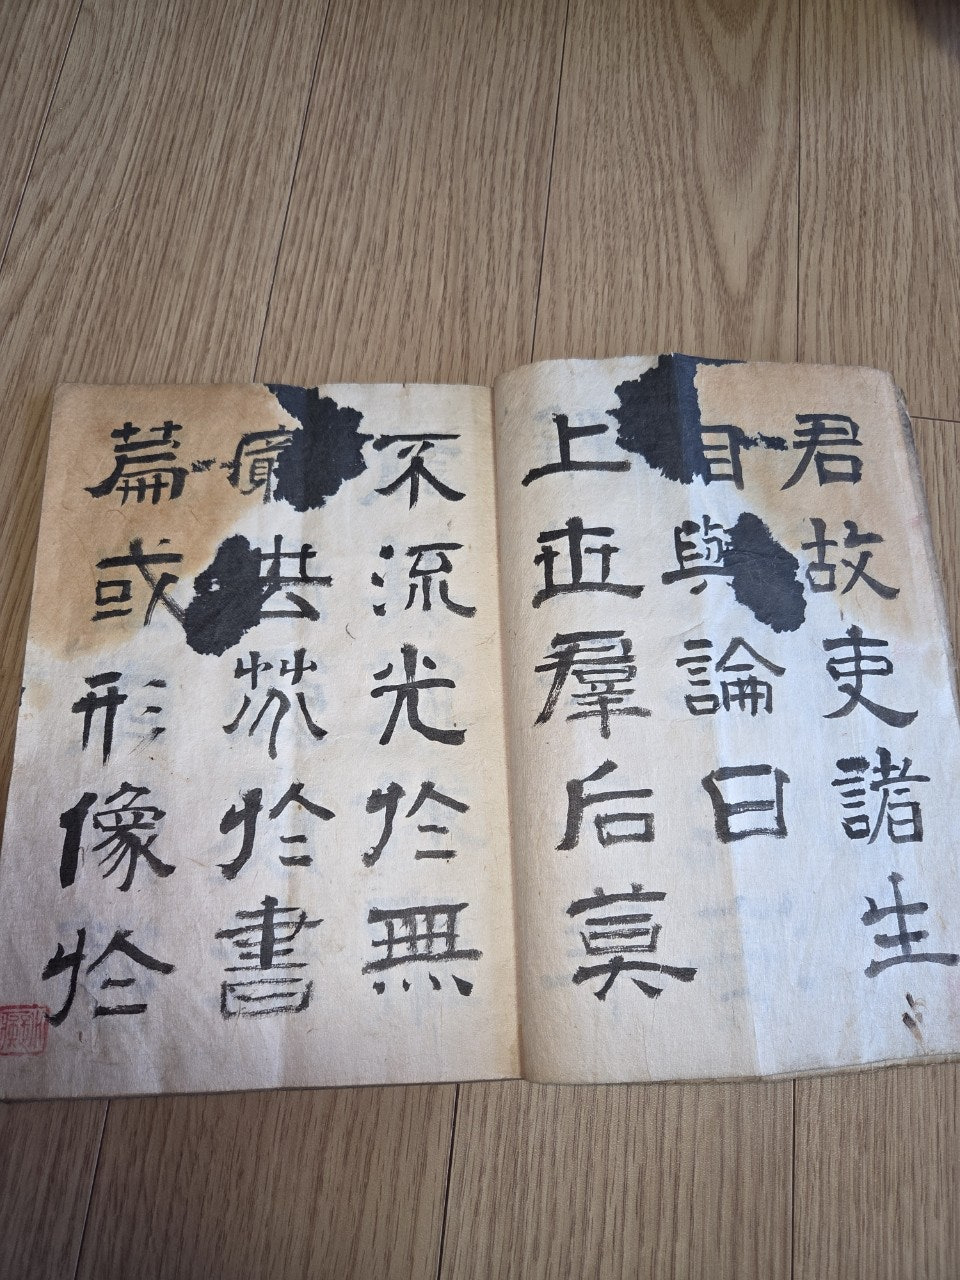 君故吏諸生
相與論曰
上世羣后莫
不流光於無
於書
篇或形像於